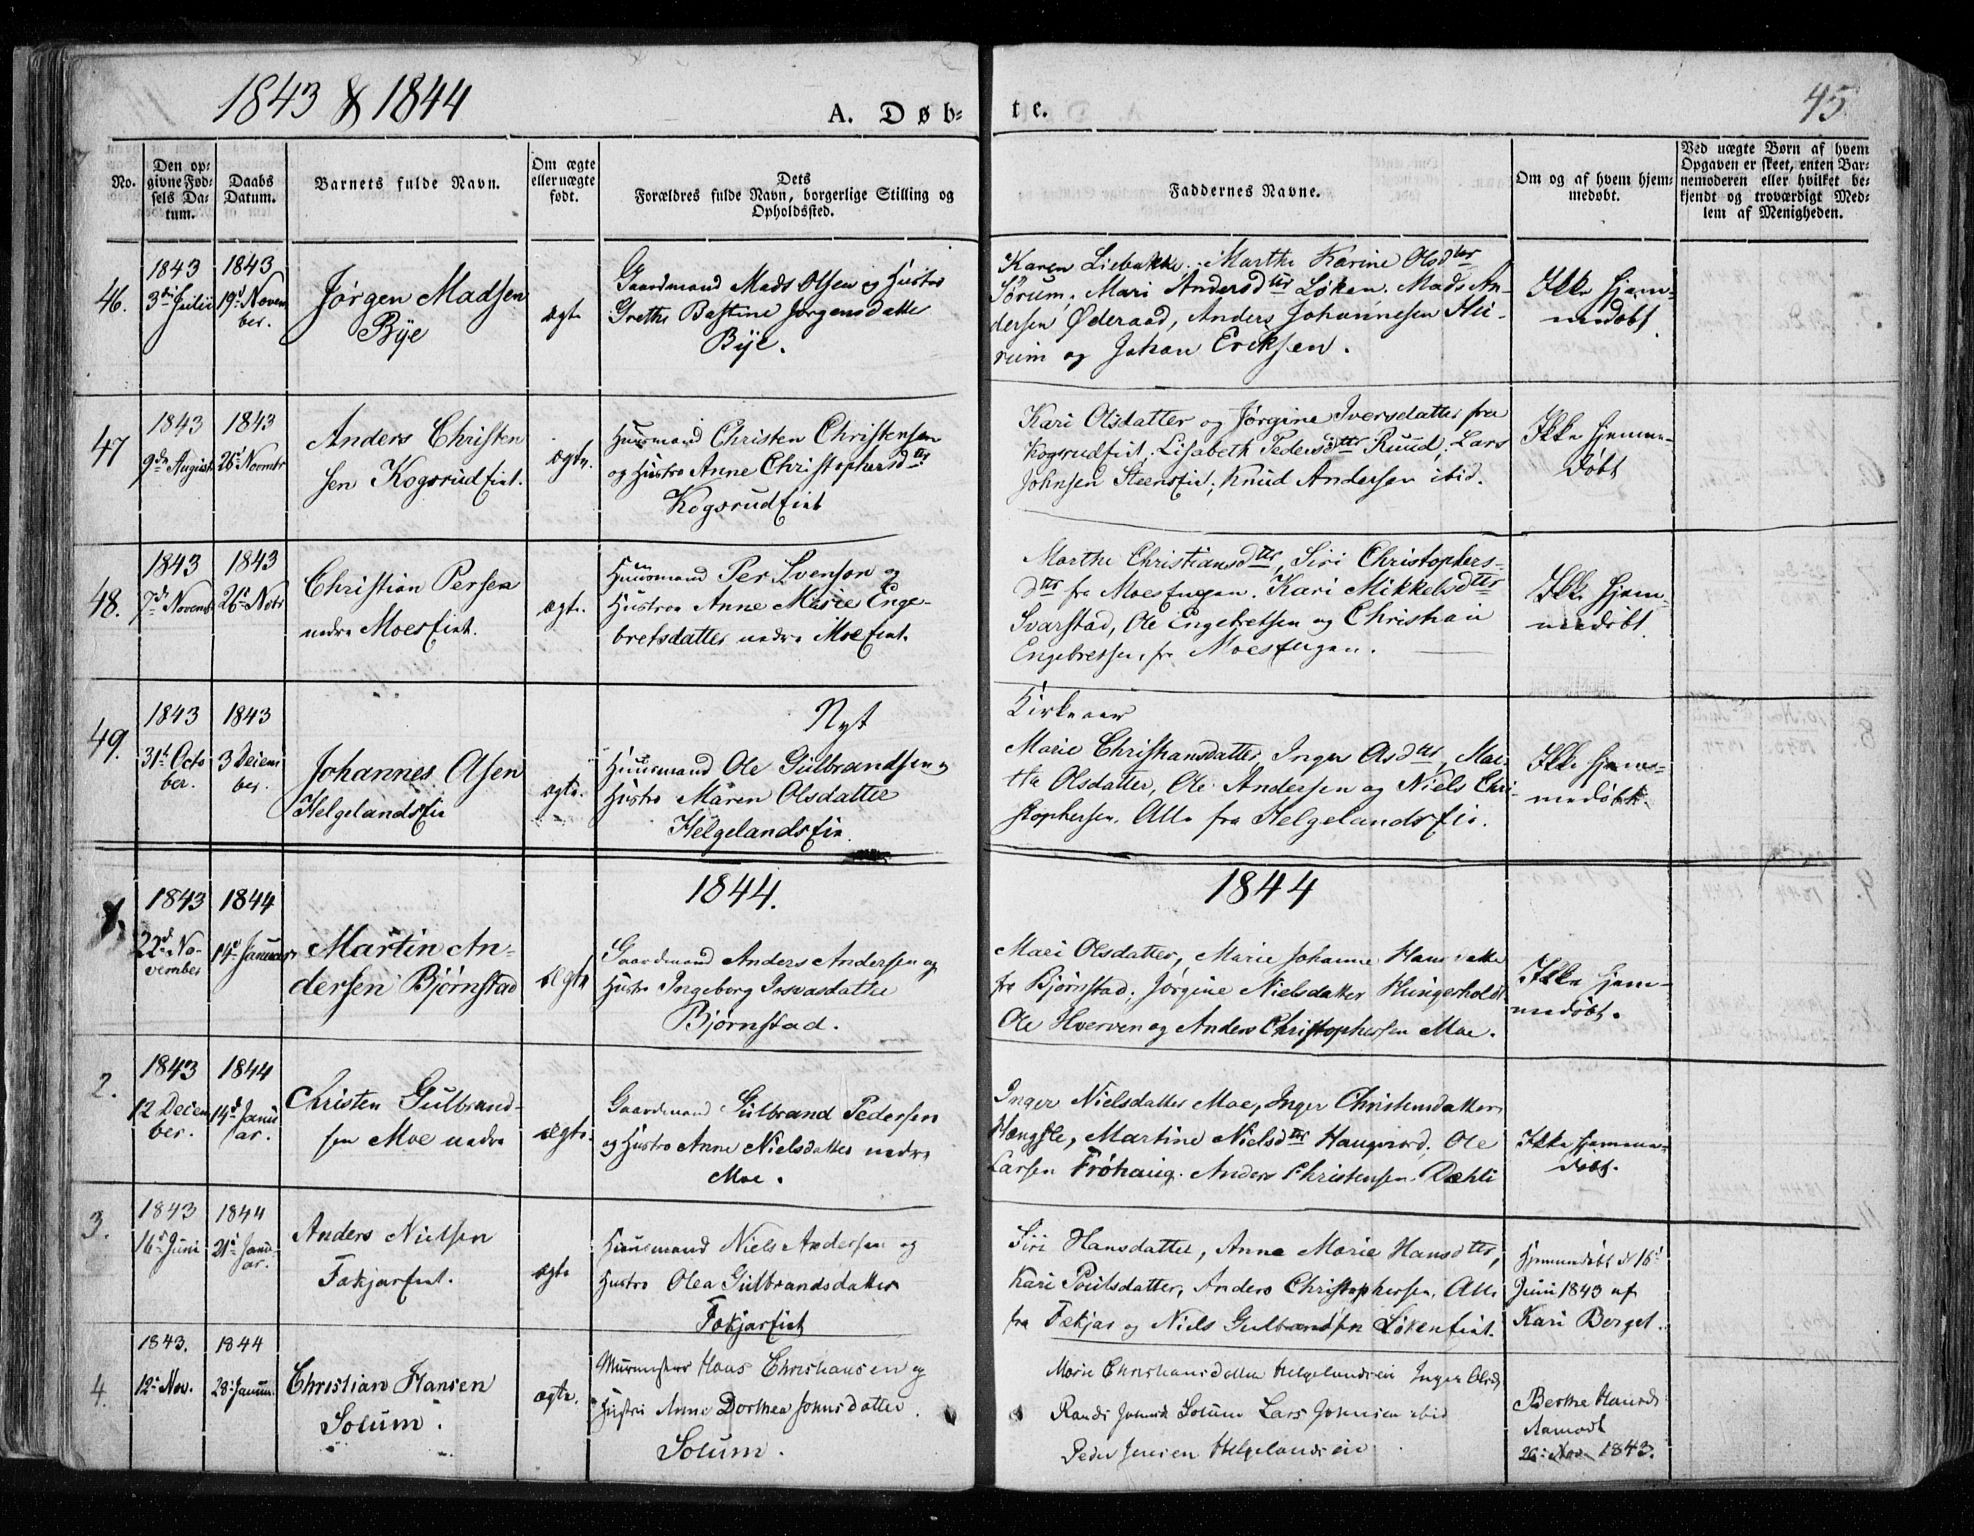 1843 & 1844
A. Døb-
te.
45
No.
Den op-
givne Fød-
sels Da-
tum.
Daabs
Datum.
Barnets fulde Navn.
Om ægte
eller uægte
født.
Dets
Forældres fulde Navn, borgerlige Stilling og
Opholdssted.
Faddernes Navne.
Om og af hvem hjem-
medøbt.
Ved uægte Børn af hvem
Opgaven er skeet, enten Bar-
nemoderen eller hvilket be-
kjendt og troværdigt Med-
lem af Menigheden.
46.
1843
3die Julii
1843
19d Novem
ber.
Jørgen Madsen
Bÿe
ægte
Gaardmand Mads Olsen og Hustro
Grethe Bastine Jørgensdatter
Bÿe.
Karen Liebakke. Marthe Karine Olsdtter
Sørum. Mari Andersdtter Løken. Mads An-
dersen Øderaad, Anders Johannesen
og Johan Eriksen.
Ikke hjem-
medøbt
47
1843
9de August
1843
26d Novmbr
Anders Christen
sen Kogsrudeiet.
ægte.
Huusmand Christen Christensen
og Hustro Anne Christophersdtter
Kogsrudeiet
Kari Olsdatter og Jørgine Iversdatter fra
Kogsrudeiet, Lisabeth Pedersdtter Ruud, Lars
Johnsen Steenseie, Knud Andersen ibid.
Ikke hjemme-
døbt
48.
1843
7d Novemb
1843
26d Novbr
Christian Persen
nedre Moeseiet.
ægte.
Huusmand Per Svenson og
Hustroe Anne Marie Enge-
bretsdatter nedre Moeeiet.
Marthe Christiansdtter, Siri Christophers-
dtter fra Moesengen. Kari Mikkelsdtter
Svarstad, Ole Engebretsen og Christian
Engebretsen, fr Moesengen.
Ikke hjem-
medøbt
49.
1843
31d Octo
ber.
1843
3 Decem
ber.
Johannes Olsen
Helgelandseie
ægte.
Nyt
Huusmand Ole Gulbrandsen og
Hustro Maren Olsdatter
Helgelandseie.
Kirkeaar
Marie Christiansdatter, Inger Olsdtter, Mar-
the Olsdatter, Ole Andersen og Niels Chri-
stophersen. Alle fra Helgelandseie.
Ikke hjem-
medøbt.
1844.
1844
1.
1843
22d No-
vember
1844
14d Januar
Martin An-
dersen Bjørnstad
Ægte
Gaardmand Anders Andersen og
Hustro Ingeborg datter
Bjørnstad.
Mari Olsdatter, Marie Johanne Hansdatter
fra Bjørnstad; Jørgine Nielsdatter Hungerholdt
Ole Hverven og Anders Christophersen Moe.
Ikke hjem-
medøbt.
2.
1843
12 Decem
ber.
1844
14d Janu
ar.
Christen Gulbrand-
sen Moe nedre
ægte.
Gaardmand Gulbrand Pedersen
og Hustro Anne Nielsdatter nedre
Moe.
Inger Nielsdatter Moe, Inger Christensdatter
Hængsle, Martine Nielsdtter Haugnord. Ole
Larsen Frøhaug. Anders Christensen Dæhli
Ikke hjemme-
døbt.
3.
1843
16d Juni
1844
21d Janu-
ar.
Anders Nielsen
Fokjareiet.
ægte
Huusmand Niels Andersen og
Hustro Olea Gulbrandsdatter
Fokjareiet
Siri Hansdatter, Anne Marie Hansdtter,
Kari Poulsdatter, Anders Christophersen. Alle
fra Fokjar og Niels Gulbrandsen Løkeneiet.
Hjemmedøbt d 16d
Juni 1843 af
Kari Berget.
4.
1843.
12d Nov.
1844
28d Januar.
Christian Hansen
Solum.
ægte.
Murmester Hans Christiansen og
Hustru Anne Dorthea Johnsdatter
Solum.
Marie Christiansdatter Helgelandseie Inger Olsd
Randi Johnsd Solum Lars Johnsen ibid
Peder Jensen Helgelandseie
Berthe Hansd
Aamodt
26d Nov 1843.